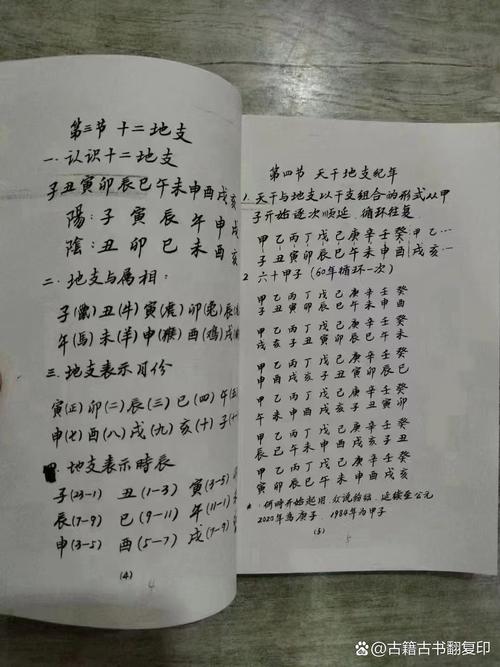 第三节 十二地支
一.认识十二地支
子丑寅卯辰巳午未申酉戌亥
陽:子 寅 辰 午 申 戌
陰:丑 卯 巳 未 酉 亥
二.地支与属相:
子(鼠)丑(牛)寅(虎)卯(兔)辰
午(馬)未(羊)申(猴)酉(鸡)戌
三.地支表示月份
寅(正)卯(二)辰(三)巳(四)午(五
申(七)酉(八)戌(九)亥(十)子(十
地支表示時辰
子(23-1) 丑(1-3) 寅(3-5)
辰(7-9) 巳(9-11) 午(11-1)
申(3-5) 酉(5-7) 戌(7-9)
(4) 4
第四节 天干地支纪年
1.天干与地支以干支组合的形式从甲
子开始逐次顺延.循环往复
甲乙丙丁戊己庚辛壬癸甲乙…
子丑寅卯辰巳午未申酉戌亥…
2 六十甲子(60年循环一次)
甲乙丙丁戊己庚辛壬癸
子丑寅卯辰巳午未申酉
甲乙丙丁戊己庚辛壬癸
戌亥子丑寅卯辰巳午未
甲乙丙丁戊己庚辛壬癸
申酉戌亥子丑寅卯辰巳
甲乙丙丁戊己庚辛壬癸
午未申酉戌亥子丑寅卯
甲乙丙丁戊己庚辛壬癸
辰巳午未申酉戌亥子丑
甲乙丙丁戊己庚辛壬癸
寅卯辰巳午未申酉戌亥
何時开始起用.众说纷纭.延续至公元
2020年为庚子 1984年为甲子
(5) 5
古籍古书翻复印